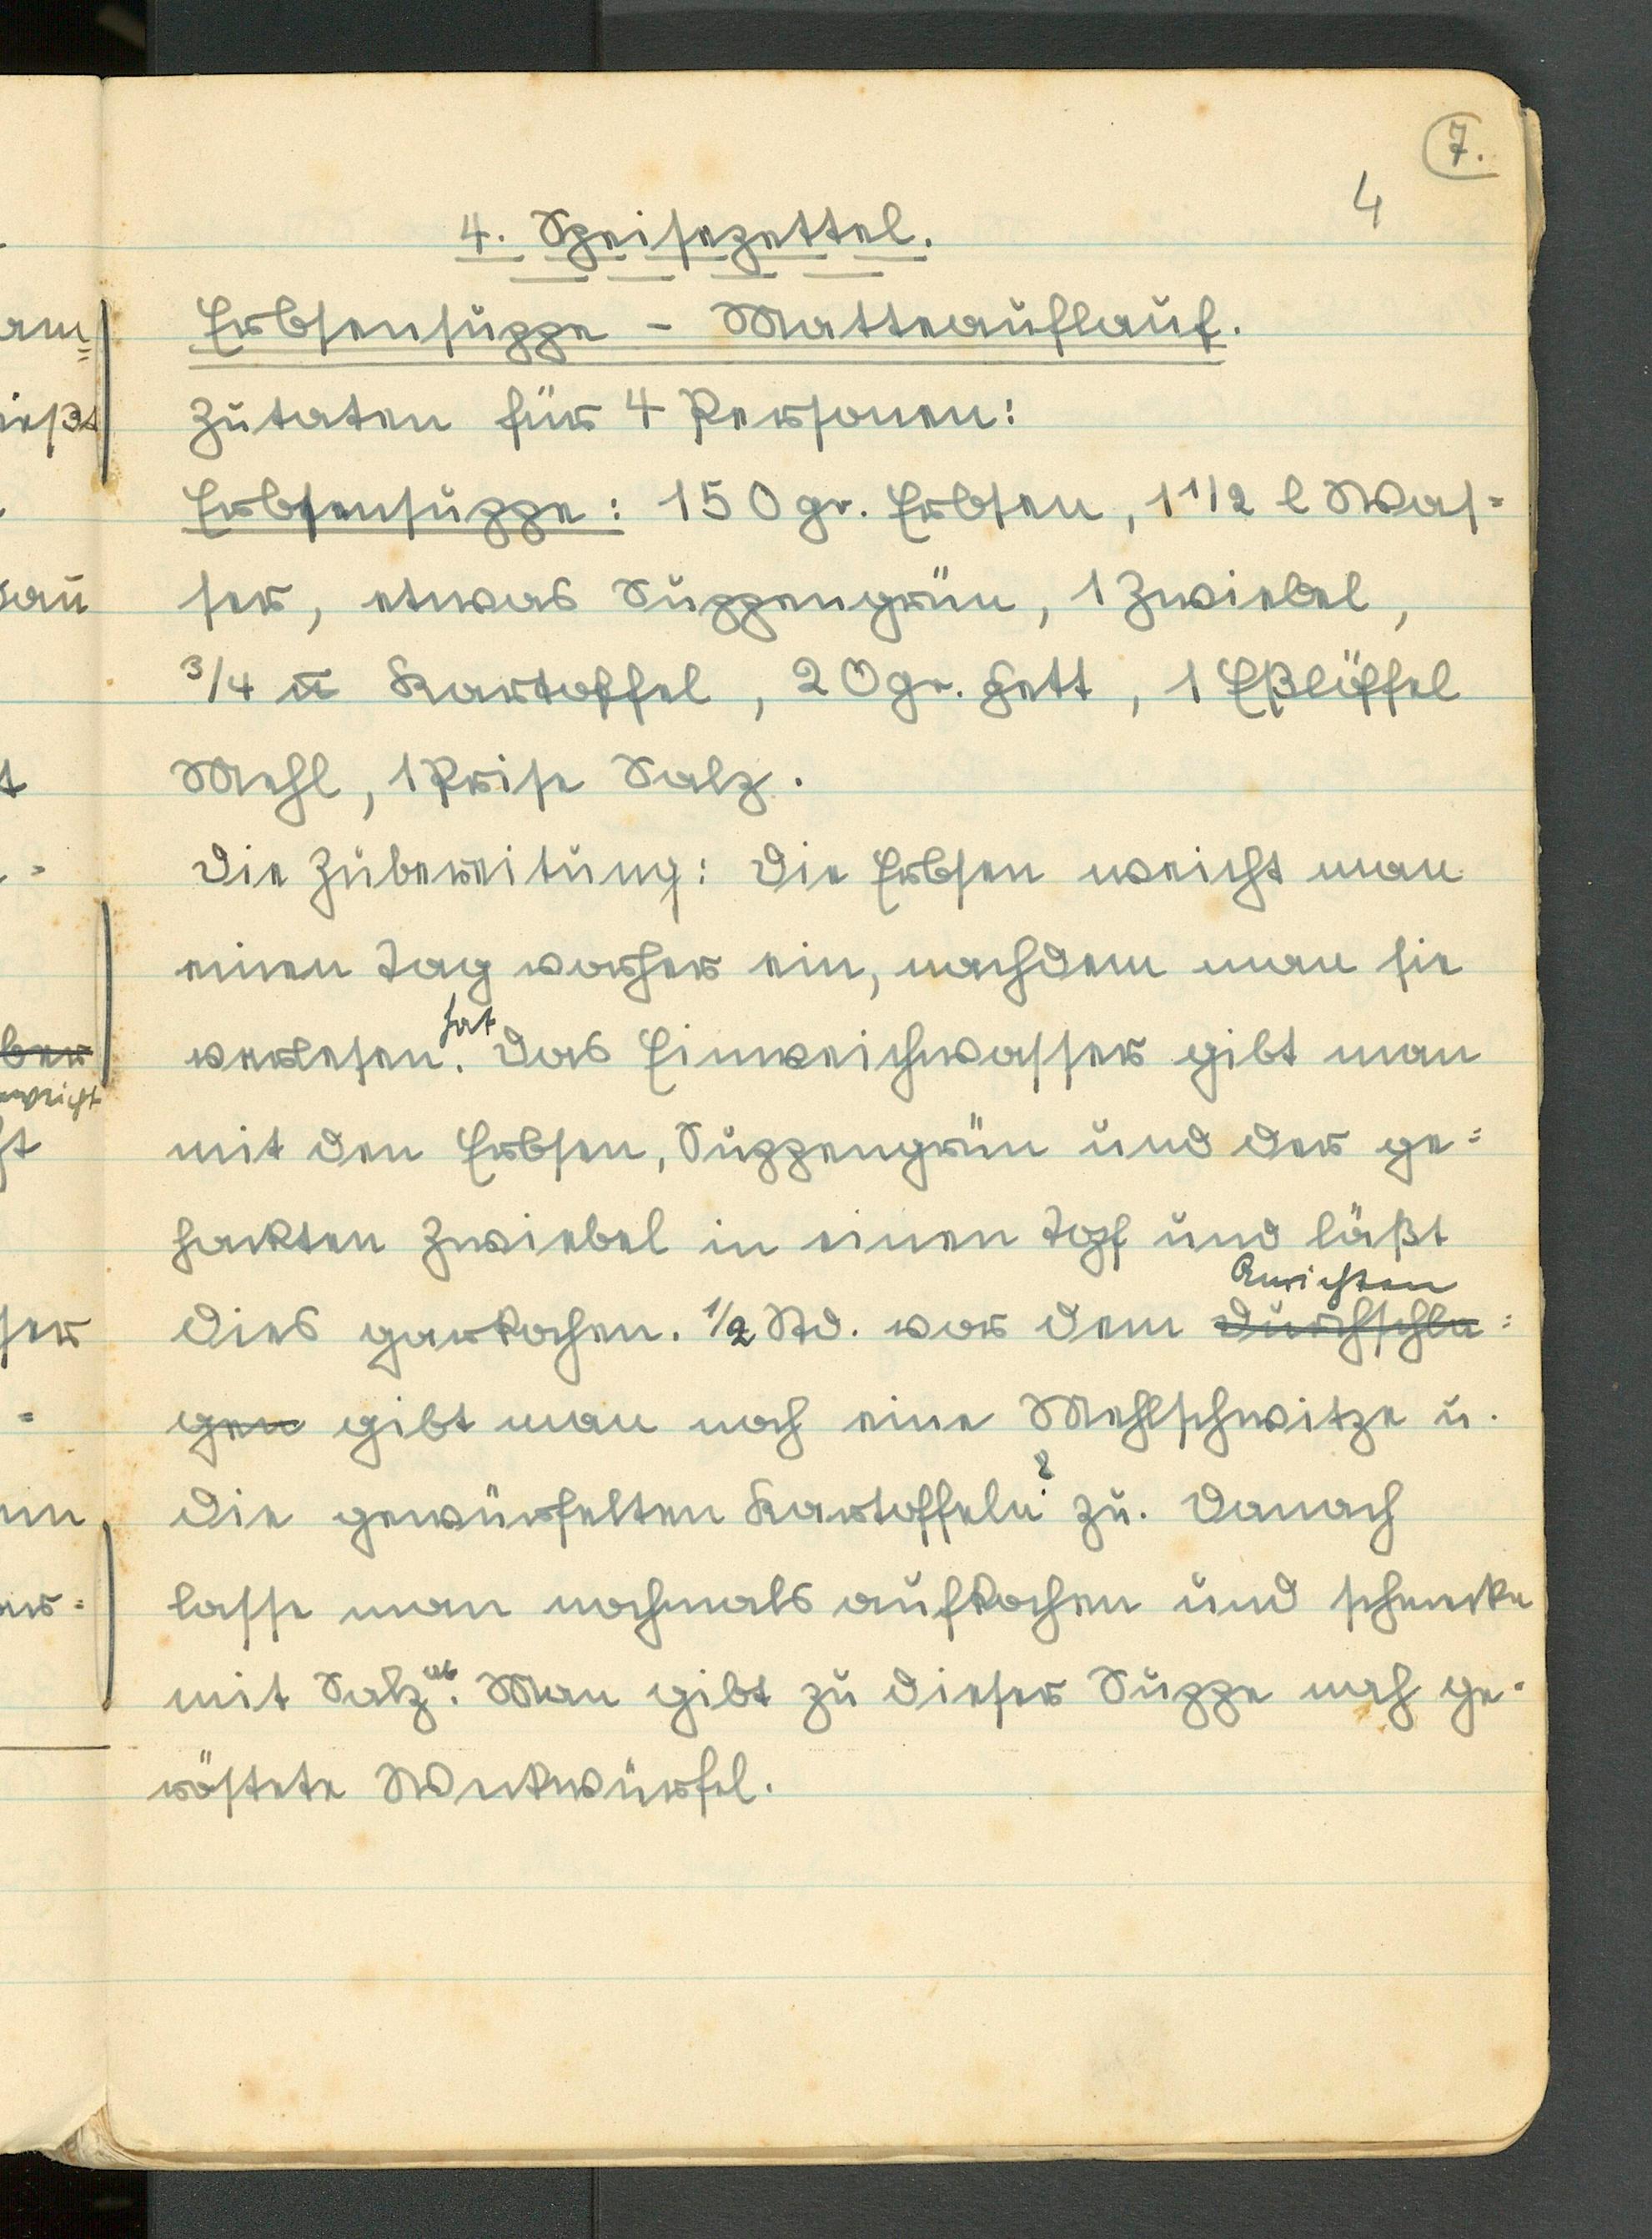 7.
4
4. Speisezettel.
Erbsensuppe - Matteauflauf.
Zutaten für 4 Personen:
Erbsensuppe: 150 gr. Erbsen, 1 1/2 l Was=
ser, etwas Suppengrün, 1 Zwiebel,
3/4 ℔ Kartoffel, 20 gr. Fett, 1 Eßlöffel
Mehl, 1 Prise Salz.
Die Zubereitung: Die Erbsen weicht man
einen Tag vorher ein, nachdem man sie
hat
verlesen. Das Einweichwasser gibt man
mit den Erbsen, Suppengrün und der ge=
hackten Zwiebel in einen Topf und läßt
Anrichten
dies garkochen. 1/2 Std. vor dem durchschla=
gen gibt man noch eine Mehlschwitze u.
die gewürfelten Kartoffeln zu. Danach
lasse man nochmals aufkochen und schmecke
mit Salz ab. Man gibt zu dieser Suppe noch ge=
röstete Weckwürfel.